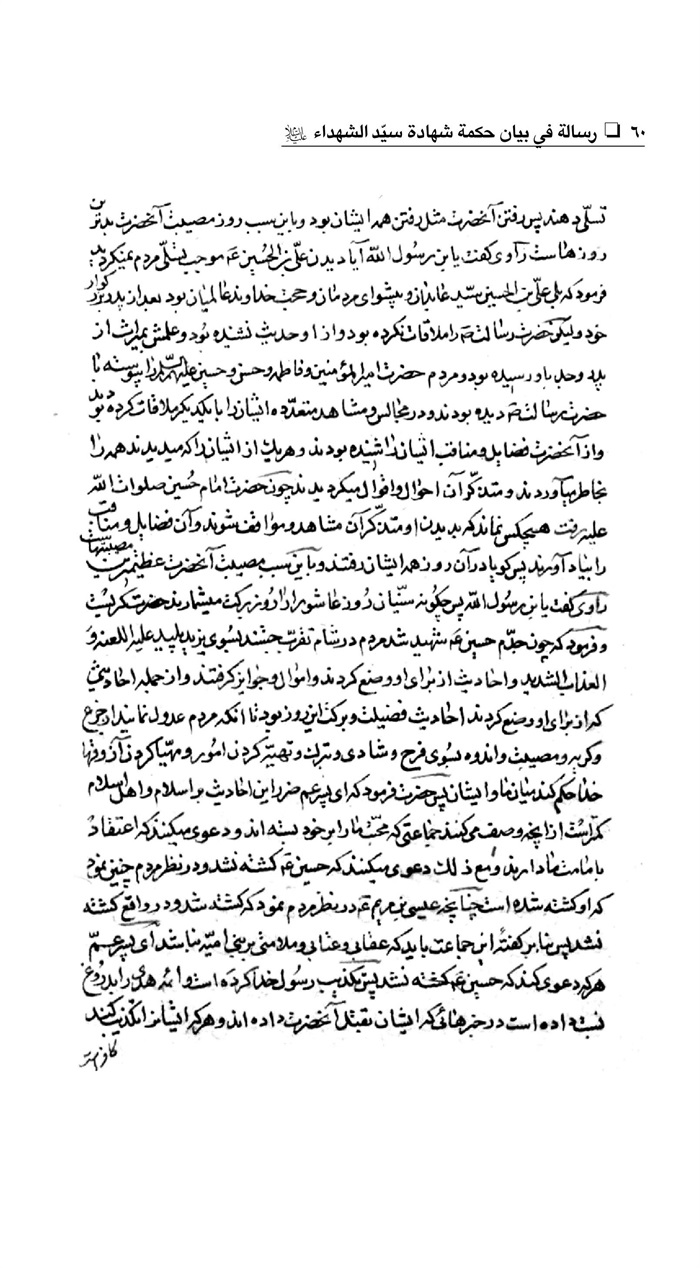 ٦٠ ❏ رسالة في بيان حكمة شهادة سيّد الشهداء عليه السلام
تسلّی دهند پس رفتن آنحضرت مثل رفتن همه ایشان بود و باین سبب روز مصیبت آنحضرت بدترین
روزهاست راوی کفت یابن رسول الله آیا دیدن علی بن الحسین عـ موجب تسلّی مردم نمیکردید
فرمود که بلی علی بن الحسین سید عابدان و پیشوای مردمان و حجت خداوند عالمیان بود بعد از پدر بزرکوار
خود ولیکن حضرت رسالت صـ را ملاقات نکرده بود و از او حدیث نشنیده بود و علمش بمیراث از
پدر و جد باو رسیده بود و مردم حضرت امیرالمؤمنین و فاطمه و حسن و حسین علیهم السلام را پیوسته با
حضرت رسالت صـ دیده بودند و در مجالس و مشاهد متعدده ایشان را با یکدیکر ملاقات کرده بودند
و از آنحضرت فضایل و مناقب ایشان را شنیده بودند و هر یک از ایشان را که میدیدند همه را
بخاطر میآوردند و متذکر آن احوال و اقوال میکردیدند چون حضرت امام حسین صلوات الله
علیه رفت هیچکس نماند که بدیدن او متذکر آن مشاهد و مواقف شوند و آن فضایل و مناقب
را بیاد آورند پس کویا در آن روز همه ایشان رفتند و باین سبب مصیبت آنحضرت عظیمترین مصیبتهاست
راوی کفت یابن رسول الله پس چکونه سنّیان روز عاشورا را روز برکت میشمارند حضرت کریست
و فرمود که چون جدّم حسین عـ شهید شد مردم در شام تقرب جستند بسوی یزید پلید علیه اللعنه و
العذاب الشدید و احادیث از برای او وضع کردند و اموال و جوایز کرفتند و از جمله احادیثی
که از برای او وضع کردند احادیث فضیلت و برکت این روز بود تا آنکه مردم عدول نمایند از جزع
و کریه و مصیبت و اندوه بسوی فرح و شادی و تبرک و تهیّه کردن امور و مهیّا کردن آزوقها
خدا حکم کند میان ما و ایشان پس حضرت فرمود که ای پسر عم ضرر این احادیث بر اسلام و اهل اسلام
کمتر است از آنچه وصف میکنند جماعتی که محبّت ما را بر خود بسته اند و دعوی میکنند که اعتقاد
بامامت ما دارند و مع ذلک دعوی میکنند که حسین عـ کشته نشد و در نظر مردم چنین نمود
که او کشته شده است چنانچه عیسی بن مریم عـ در نظر مردم نمود که کشته شد و در واقع کشته
نشد پس بنابر کفتهٔ این جماعت باید که عقابی و عتابی و ملامتی بر بنی امیّه نباشد ای پسر عمّ
هر که دعوی کند که حسین عـ کشته نشد پس تکذیب رسول خدا کرده است و ائمه هدی را بدروغ
نسبت داده است در خبرهائی که ایشان بقتل آنحضرت داده اند و هر که ایشانرا تکذیب کند
کافر است